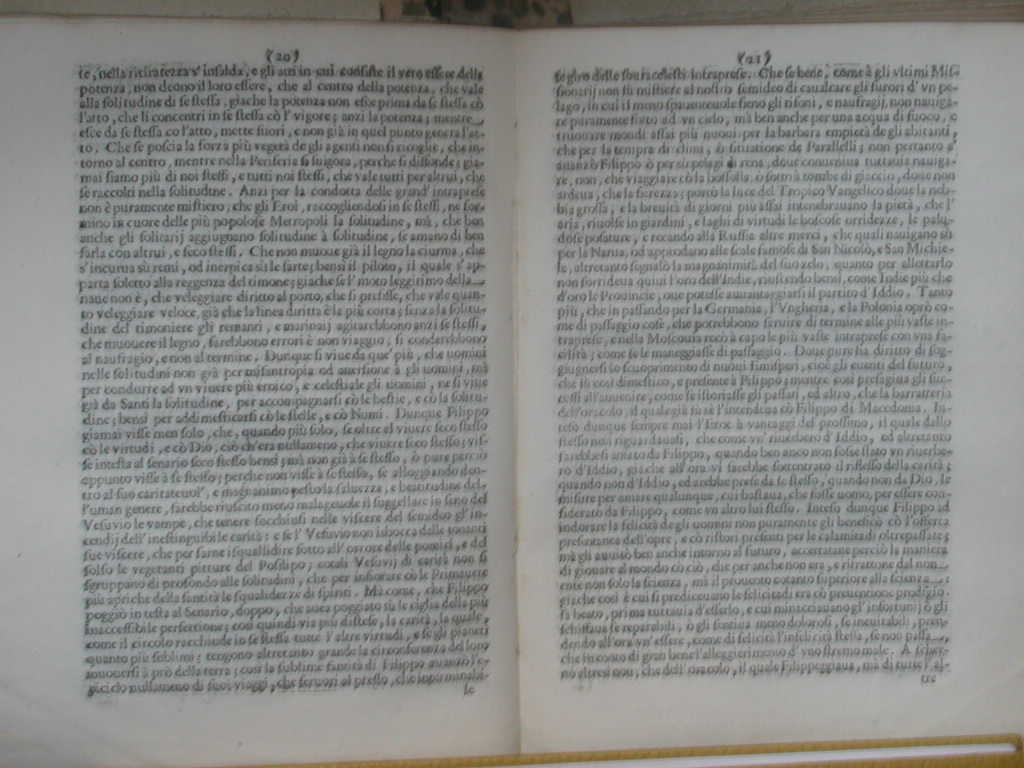 (20)
te, nella ritiratezza s' insalda, e gli atti in cui consiste il vero essere della
potenza, non deono il loro essere, che al centro della potenza, che vale
alla solitudine di se stessa, giache la potenza non esce prima da se stessa cò
l'atto, che li concentri in se stessa cò l' vigore; anzi la potenza; mentre
esce da se stessa co l'atto, mette fuori, e non già in quel punto genera l'at-
to. Che se poscia la forza più vegeta de gli agenti non si scioglie, che in-
torno al centro, mentre nella Periferia si snigora, perche si disfonde; gia-
mai siamo più di noi stessi, e tutti noi stessi, che vale tutti per altrui, che
se raccolti nella solitudine. Anzi per la condotta delle grand' intraprese
non è puramente mistiero; che gli Eroi, raccogliendosi in se stessi, ne for-
mino in cuore delle più popolose Metropoli la solitudine, mà, che ben
anche gli solitarij aggiugnano solitudine à solitudine, se amano di ben
farla con altrui, e seco stessi. Che non muoue già il legno la ciurma, che
s' incurua sù remi, od inerpica sù le sarte; bensì il piloto, il quale s' ap-
parta soletto alla reggenza del timone; giache se l' moto leggitimo della
naue non è, che veleggiare diritto al porto, che si prefisse, che vale quan-
to veleggiare veloce, già che la linea diritta è la più corta; senza la solitu-
dine del timoniere gli remanti, e marinaij agitarebbono anzi se stessi,
che muouere il legno, sarebbono errori è non viaggio, si conderebbono
al naufragio, e non al termine. Dunque si viue da que' più, che uomini
nelle solitudini non già per misantropia od auersione à gli uomini, mà
per condurre ad vn viuere più eroico, e celestiale gli uomini, ne si viue
già da Santi la solitudine, per accompagnarsi cò le bestie, e cò la solitu-
dine; bensì per addimesticarsi cò le stelle, e cò Numi. Dunque Filippo
giamai visse men solo, che, quando più solo, se oltre el viuere seco stesso
cò le virtudi, e cò Dio, ciò ch'era nullameno, che viuere seco stesso; vis-
se intesta al senario seco stesso bensì; mà non già à se stesso, ò pure perciò
appunto visse à se stesso; perche non visse à se stesso, se alloggiando den-
tro al suo caritateuol', e magnanimo petto la saluezza, e beatitudine del-
l'uman genere, sarebbe riuscito meno malageuole il suggellare in seno del
Vesuvio le vampe, che tenere socchiusi nelle viscere del semideo gl' in-
cendij dell' inestinguibile carità: e se l' Vesuvio non isbocca dalle tonanti
sue viscere, che per farne isquallidire sotto all' orrore delle pomici, e del
solfo le vegetanti pitture del Posilipo; cotali Vesuvij di carità non si
sgruppano di profondo alle solitudini, che per infiorare cò le Primauere
più apriche della santità le squalidezze di spiriti. Mà come, che Filippo
poggiò in testa al Senario, doppo, che auea poggiato sù le ciglia della più
inaccessibile perfettione; così quindi via più distese, la carità, la quale,
come il circolo racchiude in se stessa tutte l' altre virtudi, e se gli pianeti
quanto più sublimi; tengono altretanto grande la circonferenza del loro
muouersi à prò della terra; così la sublime santità di Filippo auanzò l'e-
piciclo nullameno di suoi viaggi, che feruori al presso, che innumerabi-
le
(21)
se giro delle soura celesti intraprese. Che se bene, come à gli vltimi Mis-
sionarij non fù mistiere al nostro semideo di caualcare gli furori d' vn pe-
lago, in cui il meno spauenteuole sieno gli tifoni, e naufragij, non nauiga-
re puramente sotto ad vn cielo, mà ben anche per una acqua di fuoco, e
truouare mondi assai più nuoui per la barbara empietà de gli abitanti,
che per la tempra di clima, ò situatione de Paralleli; non pertanto s'
auanzò Filippo ò per sì pelagi di rena, doue conueniua tuttauia nauiga-
re, non, che viaggiare cò la bossola, ò sotto à tombe di giaccio, doue non
ardeua, che la fierezza; portò la luce del Tropico Vangelico doue la neb-
bia grossa, e la breuità di giorni più assai intenebrauano la pietà, che l'
aria, riuolse in giardini, e laghi di virtudi le boscose orridezze, le palu-
dose posature, e recando alla Russia altre merci, che quali nauigano sù
per la Narua, od approdano alle scale famose di San Nicolò, e San Michie-
le, altretanto segnalò la magnanimità del suo zelo, quanto per allettarlo
non sorrideua quiui l'oro dell'Indie, riuscendo bensì, come Indie più che
d'oro le Prouincie, oue potesse auuantaggiarsi il partito d' Iddio. Tanto
più, che in passando per la Germania, l' Vngheria, e la Polonia oprò co-
me di passaggio cose, che potrebbono seruire di termine alle più vaste in-
traprese, e nella Moscouia recò à capo le più vaste intraprese con vna fa-
cilità; come se le maneggiasse di passaggio. Doue pure hà diritto di sog-
giugnersi lo scuoprimento di nuoui Emisferi, cioè gli euenti del futuro,
che fù così dimestico, e presente à Filippo; mentre così presagiua gli suc-
cessi all'auuenire, come se istoriasse gli passati, ed altro, che la barratteria
dell'oracolo, il quale già fù sè l'intendeua cò Filippo di Macedonia. In-
teso dunque sempre mai l'Eroe à vantaggi del prossimo, il quale dallo
stesso non riguardauasi, che come vn' riuerbero d' Iddio, ed altretanto
sarebbesi amato da Filippo, quando ben anco non fosse stato vn riuerbe-
ro d' Iddio, giache all'ora vi sarebbe sottentrato il riflesso della carità;
quando non d' Iddio, ed arebbe prese da se stesso, quando non da Dio, le
misure per amare qualunque, cui bastaua, che fosse uomo, per essere con-
siderato da Filippo, come vn altro lui stesso. Inteso dunque Filippo ad
indorare la felicità degli uomini non puramente gli beneficò cò l'offerta
presentanea dell'opre, e cò ristori presenti per le calamità di oltrepassate;
mà gli auuisò ben anche intorno al futuro, accertatane perciò la maniera
di giouare al mondo cò ciò, che per anche non era, e ritrattone dal non
ente non solo la scienza, mà il prouento cotanto superiore alla scienza;
giache così è cui si prediceuano le felicitadi era cò preuentione prodigio-
sa beato, prima tuttauia d'esserlo, e cui minacciauano gl' infortunij ò gli
schiffaua se reparabili, ò gli sentiua meno dolorosi, se ineuitabili, pren-
dendo all'ora vn' essere, come di felicità l'infelicità stessa, se non passa
che in conto di gran bene l'alleggierimento d' vno stremo male. A scher-
no altresì non, che dell' oracolo, il quale Filippeggiaua, mà di tutte l' al-
tre